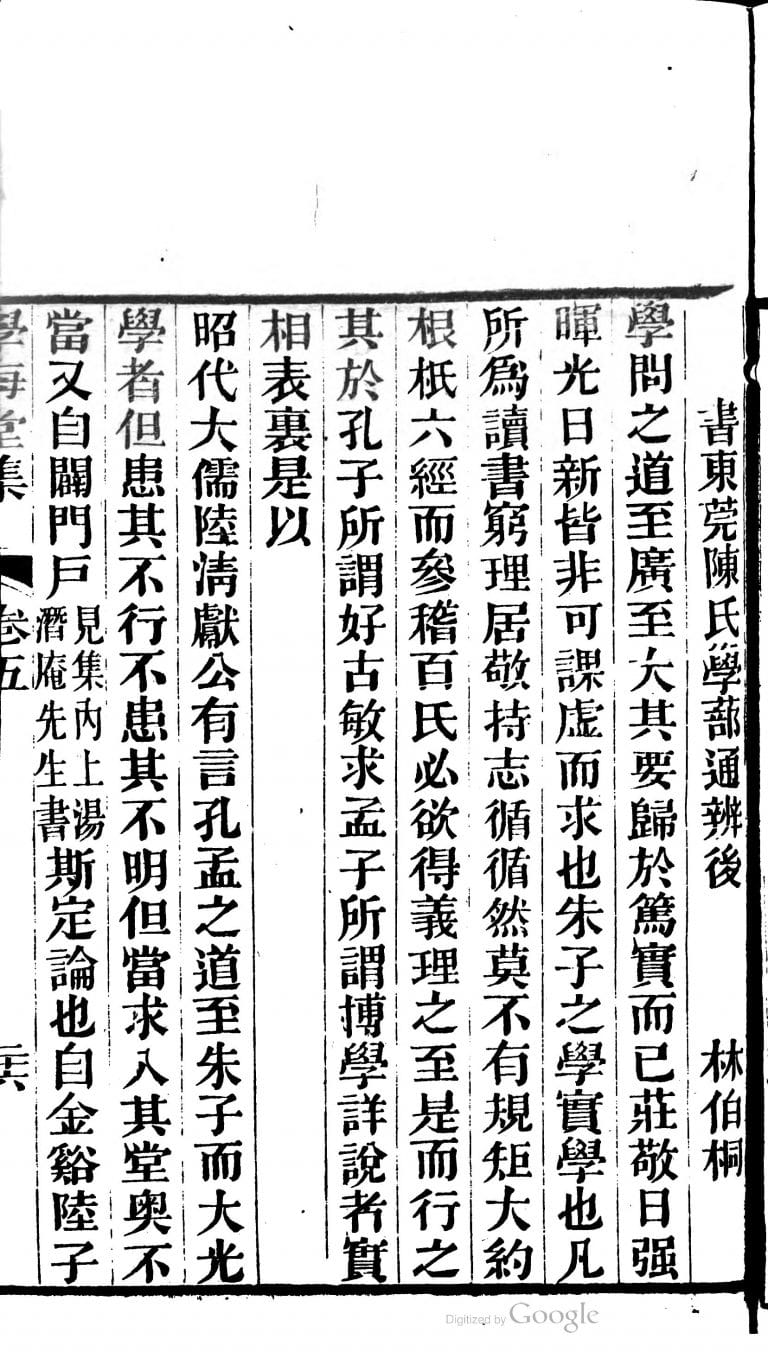 書東莞陳氏學蔀通辨後　林伯桐
學問之道至廣至大其要歸於篤實而已莊敬日强
暉光日新皆非可課虛而求也朱子之學實學也凡
所爲讀書窮理居敬持志循循然莫不有規矩大約
根柢六經而參稽百氏必欲得義理之至是而行之
其於孔子所謂好古敏求孟子所謂博學詳說者實
相表裏是以
昭代大儒陸淸獻公有言孔孟之道至朱子而大光
學者但患其不行不患其不明但當求入其堂奧不
當又自闢門戶見集內上湯潛庵先生書斯定論也自金谿陸子
學海堂集　卷五
Digitized by Google